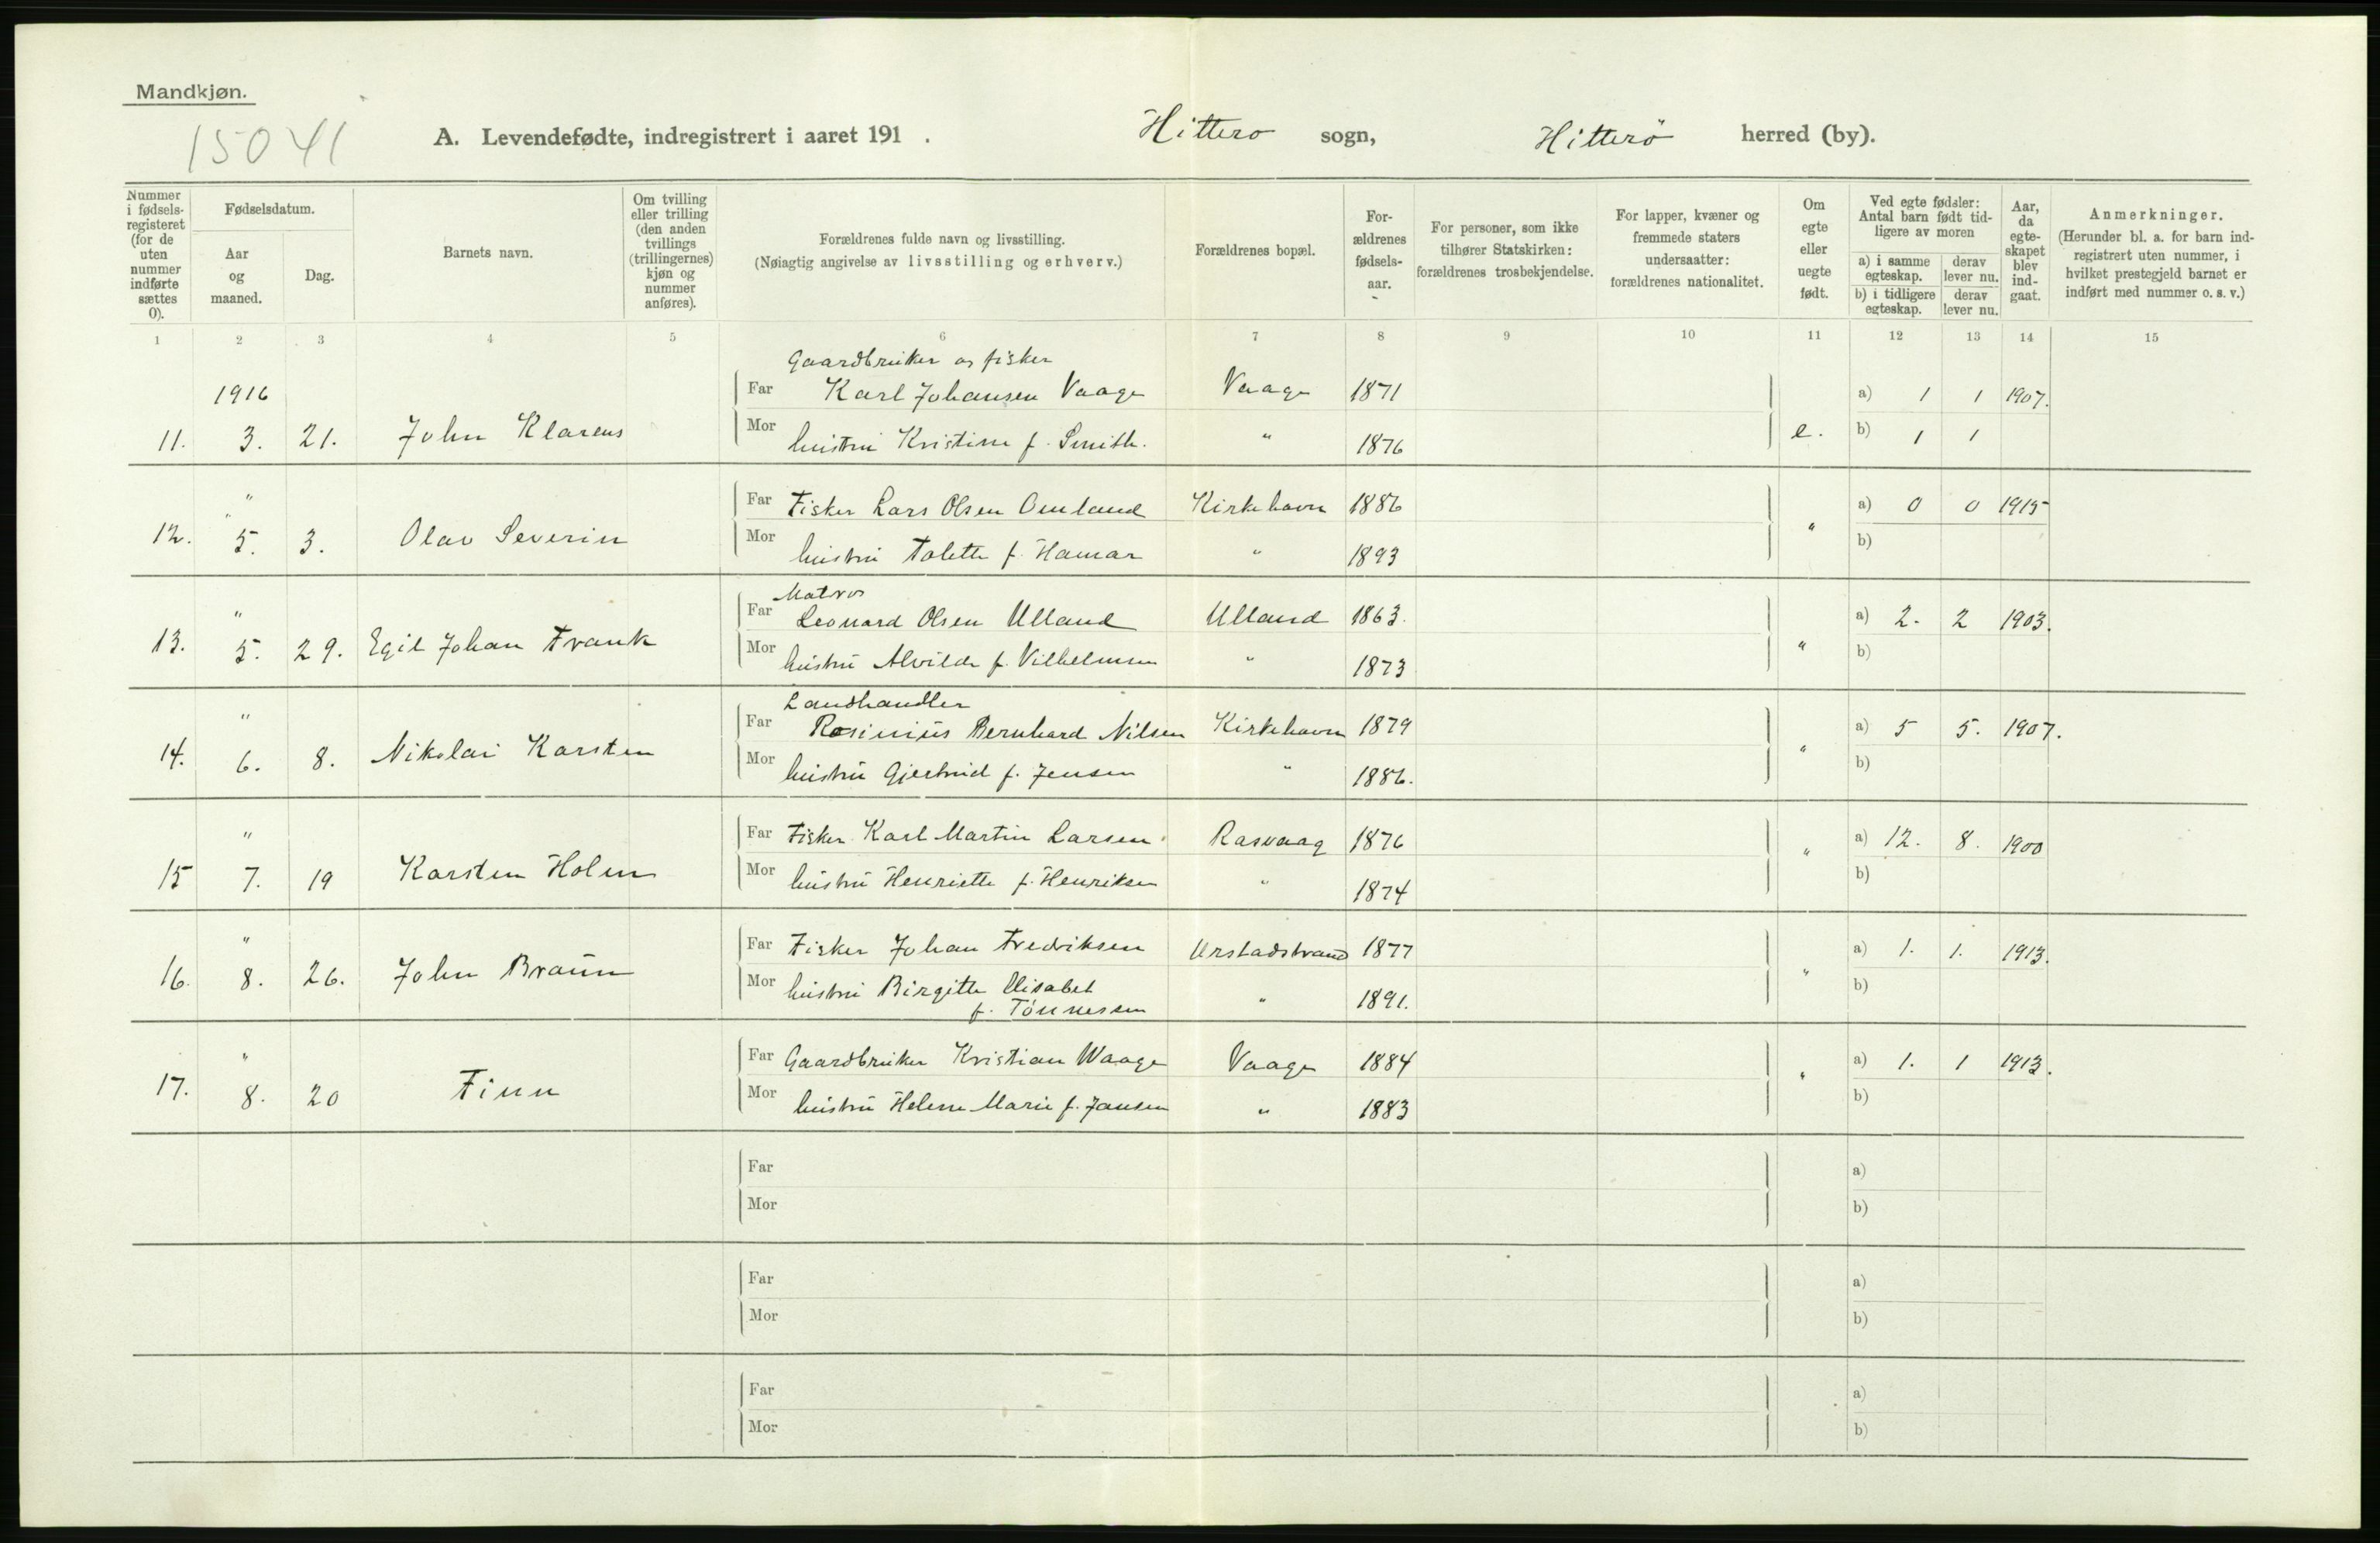 Mandkjøn.
15041
A. Levendefødte, indregistrert i aaret 191 . Hitterø sogn, Hitterö herred (by).
Nummer i fødselsregisteret (for de uten nummer indførte sættes 0).
Fødselsdatum.
Aar og maaned.
Dag.
Barnets navn.
Om tvilling eller trilling (den anden tvillings (trillingernes) kjøn og nummer anføres).
Forældrenes fulde navn og livsstilling.
(Nøiagtig angivelse av livsstilling og erhverv.)
Forældrenes bopæl.
Forældrenes fødselsaar.
For personer, som ikke tilhører Statskirken: forældrenes trosbekjendelse.
For lapper, kvæner og fremmede staters undersaatter: forældrenes nationalitet.
Om egte eller uegte født.
Ved egte fødsler: Antal barn født tidligere av moren
a) i samme egteskap.
derav lever nu.
b) i tidligere egteskap.
derav lever nu.
Aar, da egteskapet blev indgaat.
Anmerkninger.
(Herunder bl. a. for barn indregistrert uten nummer, i hvilket prestegjeld barnet er indført med nummer o. s. v.)
1 2 3 4 5 6 7 8 9 10 11 12 13 14 15
Gaardbruker og fisker
1916 Far Karl Johansen Vaage Vaage 1871 a) 1 1 1907.
11. 3. 21. John Klarens Mor hustru Kristine f. Smith. " 1876 e. b) 1 1
" Far Fisker Lars Olsen Omland Kirkehavn 1886 a) 0 0 1915
12. 5. 3. Olav Severin Mor hustru Tolette f. Hamar " 1893 " b)
Matros
" Far Leonard Olsen Ulland Ulland 1863. a) 2. 2 1903.
13. 5. 29. Egil Johan Frank Mor hustru Alvilde f. Vilhelmsen " 1873 " b)
Landhandler
" Far Rosinius Bernhard Nilsen Kirkehavn 1879 a) 5 5. 1907.
14. 6. 8. Nikolai Karsten Mor hustru Gjertrud f. Jensen " 1886. " b)
" Far Fisker Karl Martin Larsen Rasvaag 1876 a) 12. 8. 1900
15 7. 19 Karsten Holm Mor hustru Henriette f. Henriksen " 1874 " b)
" Far Fisker Johan Fredriksen Urstadstrand 1877 a) 1. 1. 1913.
16. 8. 26. John Braün Mor hustru Birgitte Elisabet " 1891. " b)
f. Tönnessen
" Far Gaardbruker Kristian Waage Vaage 1884 a) 1. 1 1913.
17. 8. 20 Finn Mor hustru Helene Marie f. Jansen " 1883 " b)
Far a)
Mor b)
Far a)
Mor b)
Far a)
Mor b)